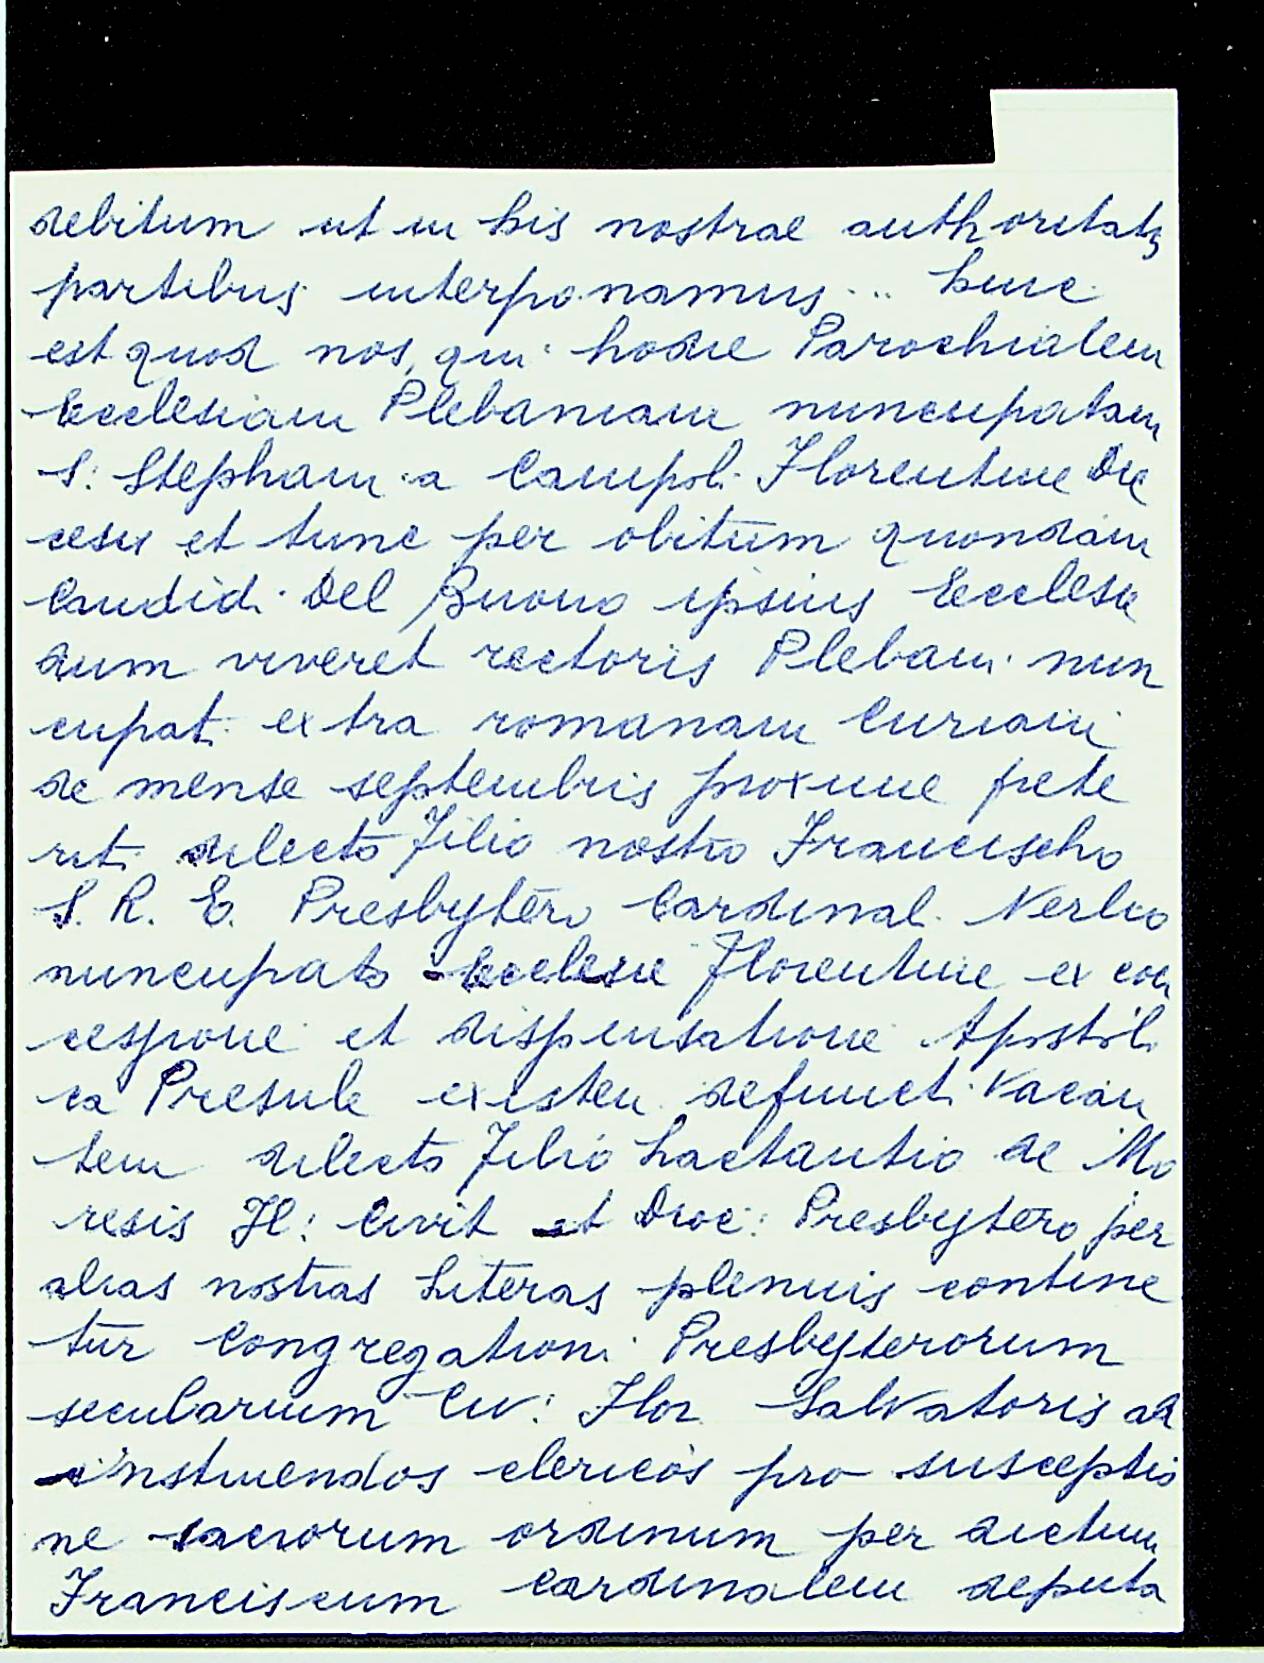 debitum ut in his nostrae authoritatis
partibus interponamus... hinc
est quod nos, qui hodie Parochialem
Ecclesiam Plebaniam nuncupatam
S: Stephani a Campoli Florentine Die
cesis et tunc per obitum quondam
Candidi Del Buono ipsius Ecclesie
dum viveret rectoris Plebani nun
cupat. extra romanam Curiam
de mense septembris proxime prete
rit. dilecto Filio nostro Francischo
S. R. E. Presbytero Cardinal. Nerlio
nuncupato Ecclesie Florentine ex con
cessione et dispensatione Apostoli
ca Presule existen. defunct. vacan
tem dilecto Filio Lactantio de Mo
resis Fl: Civit et Dioc: Presbytero per
alias nostras Literas plenius contine
tur Congregationi Presbyterorum
secularium Civ: Flor Salvatoris ad
instruendos clericos pro susceptio
ne sacrorum ordinum per dictum
Franciscum Cardinalem deputa